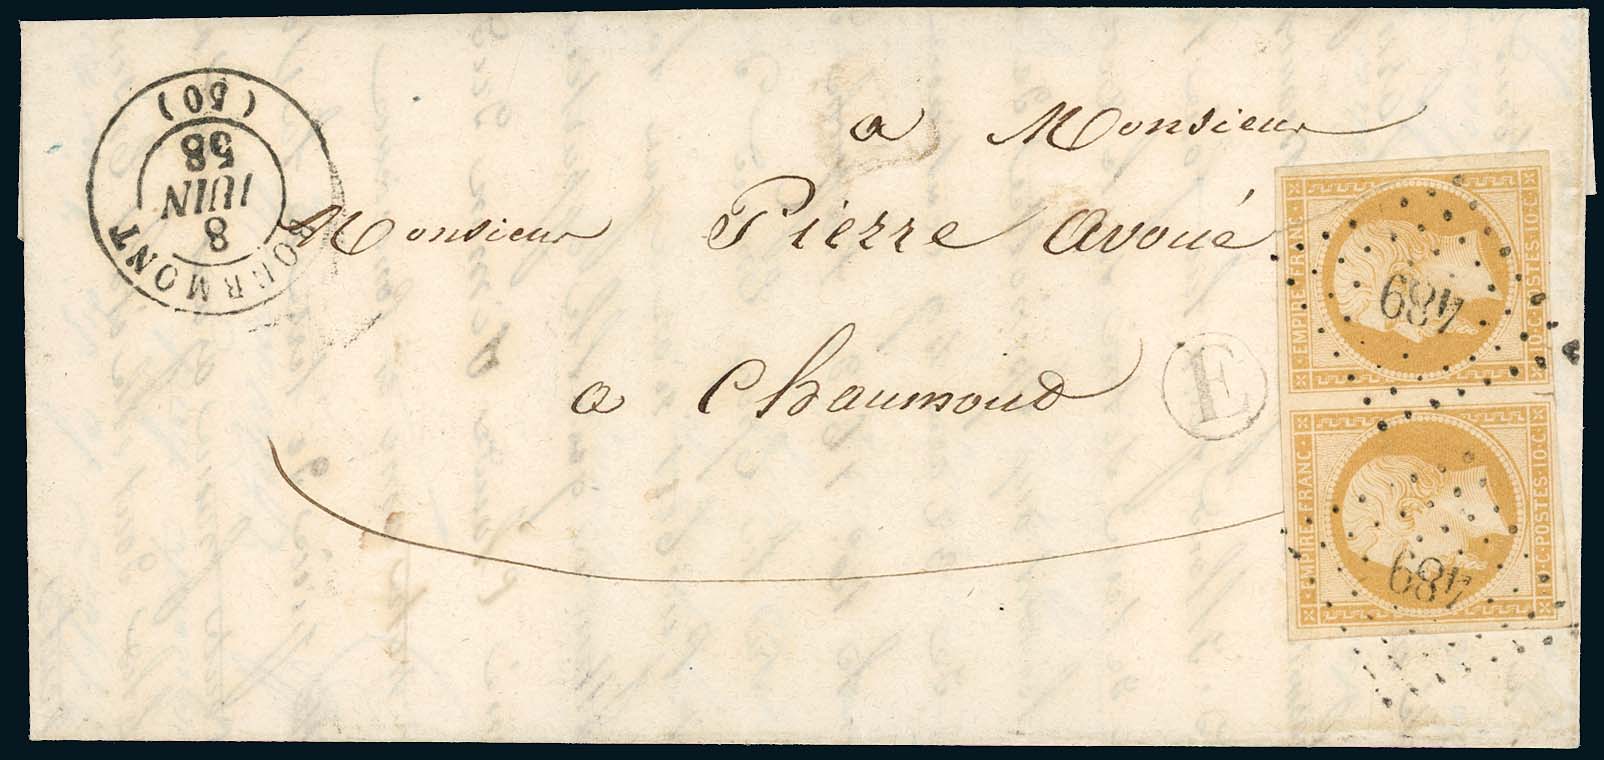 BOURMONT
8
JUIN
58
(50)
a Monsieur
Monsieur Pierre avoué
a Chaumond
E
EMPIRE FRANC.
10·C·POSTES·10·C
489
EMPIRE FRANC.
10·C·POSTES·10·C
489